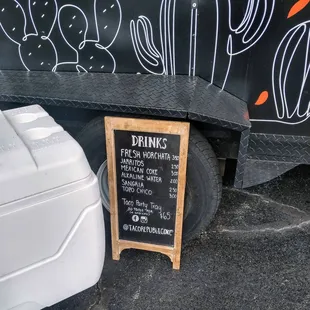 DRINKS
FRESH HORCHATA 350
JARRITOS 250
MEXICAN COKE 300
ALKALINE WATER 200
SANGRIA
TOPO CHICO 300
Taco Party Tray
$65
@TACOREPUBLICONE